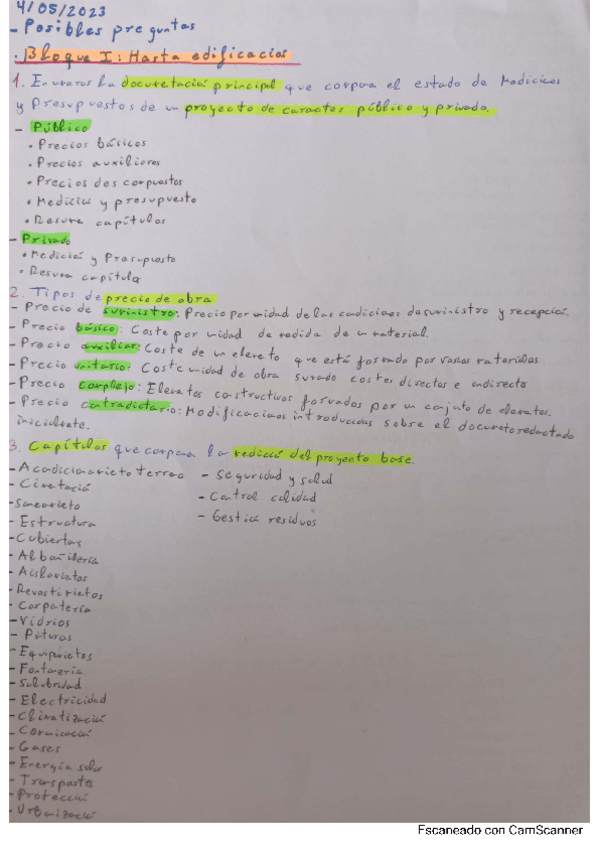 4/05/2023
- Posibles preguntas
· Bloque I: Hasta edificación
1. Enumera la documentación principal que compone el estado de Mediciones
y Presupuestos de un proyecto de carácter público y privado.
- Público
• Precios básicos
• Precios auxiliares
• Precios descompuestos
• Medición y presupuesto
• Resumen capítulos
- Privado
• Medición y Presupuesto
• Resumen capítulos
2. Tipos de precio de obra
- Precio de suministro: Precio por unidad de las condiciones de suministro y recepción.
- Precio básico: Coste por unidad de medida de un material.
- Precio auxiliar: Coste de un elemento que está formado por varios materiales
- Precio unitario: Coste unidad de obra sumado costes directos e indirecto
- Precio complejo: Elementos constructivos formados por un conjunto de elementos.
- Precio contradictorio: Modificaciones introducidas sobre el documento redactado
inicialmente.
3. Capítulos que componen la medición del proyecto base.
- Acondicionamiento terreno
- Cimentación
- Saneamiento
- Estructura
- Cubiertas
- Albañilería
- Aislamientos
- Revestimientos
- Carpintería
- Vidrios
- Pinturas
- Equipamientos
- Fontanería
- Salubridad
- Electricidad
- Climatización
- Comunicación
- Gases
- Energía solar
- Transportes
- Protección
- Urbanización
- Seguridad y salud
- Control calidad
- Gestión residuos
Escaneado con CamScanner